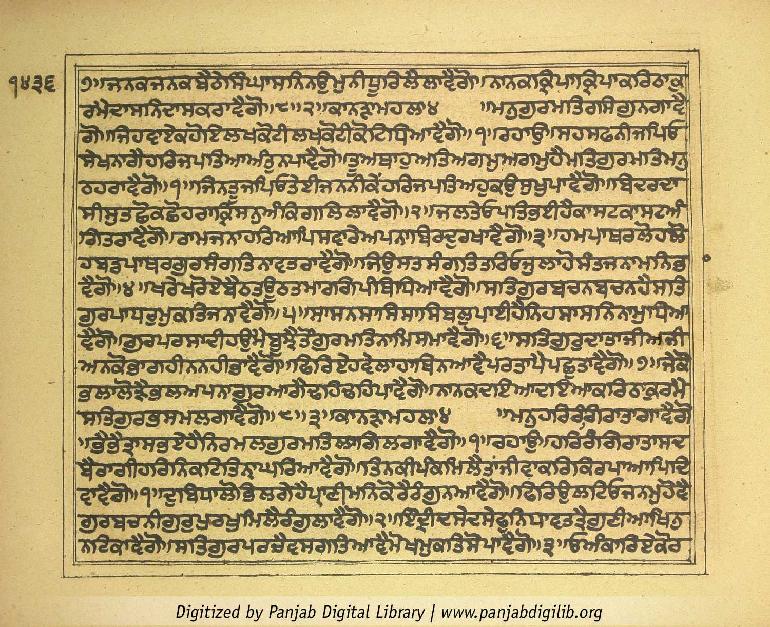 ੧੪੩੬
੭॥ਜਨਕਜਨਕਬੈਠੇਸਿੰਘਾਸਨਿਨਉਮੁਨੀਧੂਰਿਲੈਲਾਵੈਗੋ॥ਨਾਨਕਕ੍ਰਿਪਾਕ੍ਰਿਪਾਕਰਿਠਾਕੁ
ਰਮੈਦਾਸਨਿਦਾਸਕਰਾਵੈਗੋ॥੮॥੨॥ਕਾਨੜਾਮਹਲਾ੪ ॥ਮਨੁਗੁਰਮਤਿਰਸਿਗੁਨਗਾਵੈ
ਗੋ॥ਜਿਹਵਾਏਕਹੋਇਲਖਕੋਟੀਲਖਕੋਟੀਕੋਟਿਧਿਆਵੈਗੋ॥੧॥ਰਹਾਉ॥ਸਹਸਫਨੀਜਪਿਓ
ਸੇਖਨਾਗੈਹਰਿਜਪਤਿਆਅੰਤੁਨਪਾਵੈਗੋ॥ਤੂਅਥਾਹੁਅਤਿਅਗਮੁਅਗਮੁਹੈਮਤਿਗੁਰਮਤਿਮਨੁ
ਠਹਰਾਵੈਗੋ॥੧॥ਜਿਨਤੂਜਪਿਓਤੇਈਜਨਨੀਕੇਹਰਿਜਪਤਿਅਹੁਕਉਸੁਖੁਪਾਵੈਗੋ॥ਬਿਦਰਦਾ
ਸੀਸੁਤੁਛੋਕਛੋਹਰਾਕ੍ਰਿਸਨੁਅੰਕਿਗਲਿਲਾਵੈਗੋ॥੨॥ਜਲਤੇਓਪਤਿਭਈਹੈਕਾਸਟਕਾਸਟਅੰ
ਗਿਤਰਾਵੈਗੋ॥ਰਾਮਜਨਾਹਰਿਆਪਿਸਵਾਰੇਅਪਨਾਬਿਰਦੁਰਖਾਵੈਗੋ॥੩॥ਹਮਪਾਥਰਲੋਹਲੋ
ਹਬਡਪਾਥਰਗੁਰਸੰਗਤਿਨਾਵਤਰਾਵੈਗੋ॥ਜਿਉਸਤਸੰਗਤਿਤਰਿਓਜੁਲਾਹੋਸੰਤਜਨਾਮਨਿਭਾ
ਵੈਗੋ॥੪॥ਖਰੇਖਰੋਏਬੈਠਤਊਠਤਮਾਰਗਿਪੰਥਿਧਿਆਵੈਗੋ॥ਸਤਿਗੁਰਬਚਨਬਚਨਹੈਸਤਿ
ਗੁਰਪਾਧਰੁਮੁਕਤਿਜਨਾਵੈਗੋ॥੫॥ਸਾਸਨਿਸਾਸਿਸਾਸਿਬਲੁਪਾਈਹੈਨਿਹਸਾਸਨਿਨਾਮੁਧਿਆ
ਵੈਗੋ॥ਗੁਰਪਰਸਾਦੀਹਉਮੈਬੂਝੈਤੌਗੁਰਮਤਿਨਾਮਿਸਮਾਵੈਗੋ॥੬॥ਸਤਿਗੁਰੁਦਾਤਾਜੀਅਜੀ
ਅਨਕੋਭਾਗਹੀਨਨਹੀਭਾਵੈਗੋ॥ਫਿਰਿਏਹਵੇਲਾਹਾਥਿਨਆਵੈਪਰਤਾਪੈਪਛੁਤਾਵੈਗੋ॥੭॥ਜੇਕੋ
ਭਲਾਲੋੜੈਭਲਅਪਨਾਗੁਰਆਗੈਢਹਿਢਹਿਪਾਵੈਗੋ॥ਨਾਨਕਦਇਆਦਇਆਕਰਿਠਾਕੁਰਮੈ
ਸਤਿਗੁਰਭਸਮਲਗਾਵੈਗੋ॥੮॥੩॥ਕਾਨੜਾਮਹਲਾ੪ ॥ਮਨੁਹਰਿਰੰਗਿਰਾਤਾਗਾਵੈਗੋ
॥ਭੈਭੈਤ੍ਰਾਸਭਏਹੈਨਿਰਮਲਗੁਰਮਤਿਲਾਗਿਲਗਾਵੈਗੋ॥੧॥ਰਹਾਉ॥ਹਰਿਰੰਗਿਰਾਤਾਸਦ
ਬੈਰਾਗੀਹਰਿਨਿਕਟਿਤਿਨਾਘਰਿਆਵੈਗੋ॥ਤਿਨਕੀਪੰਕਮਿਲੈਤਾਂਜੀਵਾਕਰਿਕਿਰਪਾਆਪਿਦਿ
ਵਾਵੈਗੋ॥੧॥ਦੁਬਿਧਾਲੋਭਿਲਗੇਹੈਪ੍ਰਾਣੀਮਨਿਕੋਰੈਰੰਗੁਨਆਵੈਗੋ॥ਫਿਰਿਉਲਟਿਓਜਨਮੁਹੋਵੈ
ਗੁਰਬਚਨੀਗੁਰੁਪੁਰਖੁਮਿਲੈਰੰਗੁਲਾਵੈਗੋ॥੨॥ਇੰਦ੍ਰੀਦਸੇਦਸੇਫੁਨਿਧਾਵਤਤ੍ਰੈਗੁਣੀਆਖਿਨੁ
ਨਟਿਕਾਵੈਗੋ॥ਸਤਿਗੁਰਪਰਚੈਵਸਗਤਿਆਵੈਮੋਖਮੁਕਤਿਸੋਪਾਵੈਗੋ॥੩॥ਓਅੰਕਾਰਿਏਕੋਰ
Digitized by Panjab Digital Library | www.panjabdigilib.org